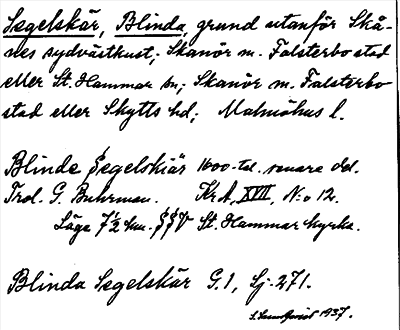 Segelskär, Blinda, grund utanför Skå-
nes sydvästkust; Skanör m. Falsterbo stad
eller St. Hammar sn; Skanör m. Falsterbo
stad eller Skytts hd; Malmöhus l.
Blinde Segelskiär 1600-tal. senare del.
Trol. G. Buhrman. Kr A, XVII, N:o 12.
Läge 7½ km. SSV St. Hammar kyrka.
Blinda Segelskär G.1, Sj. 271.
1937.